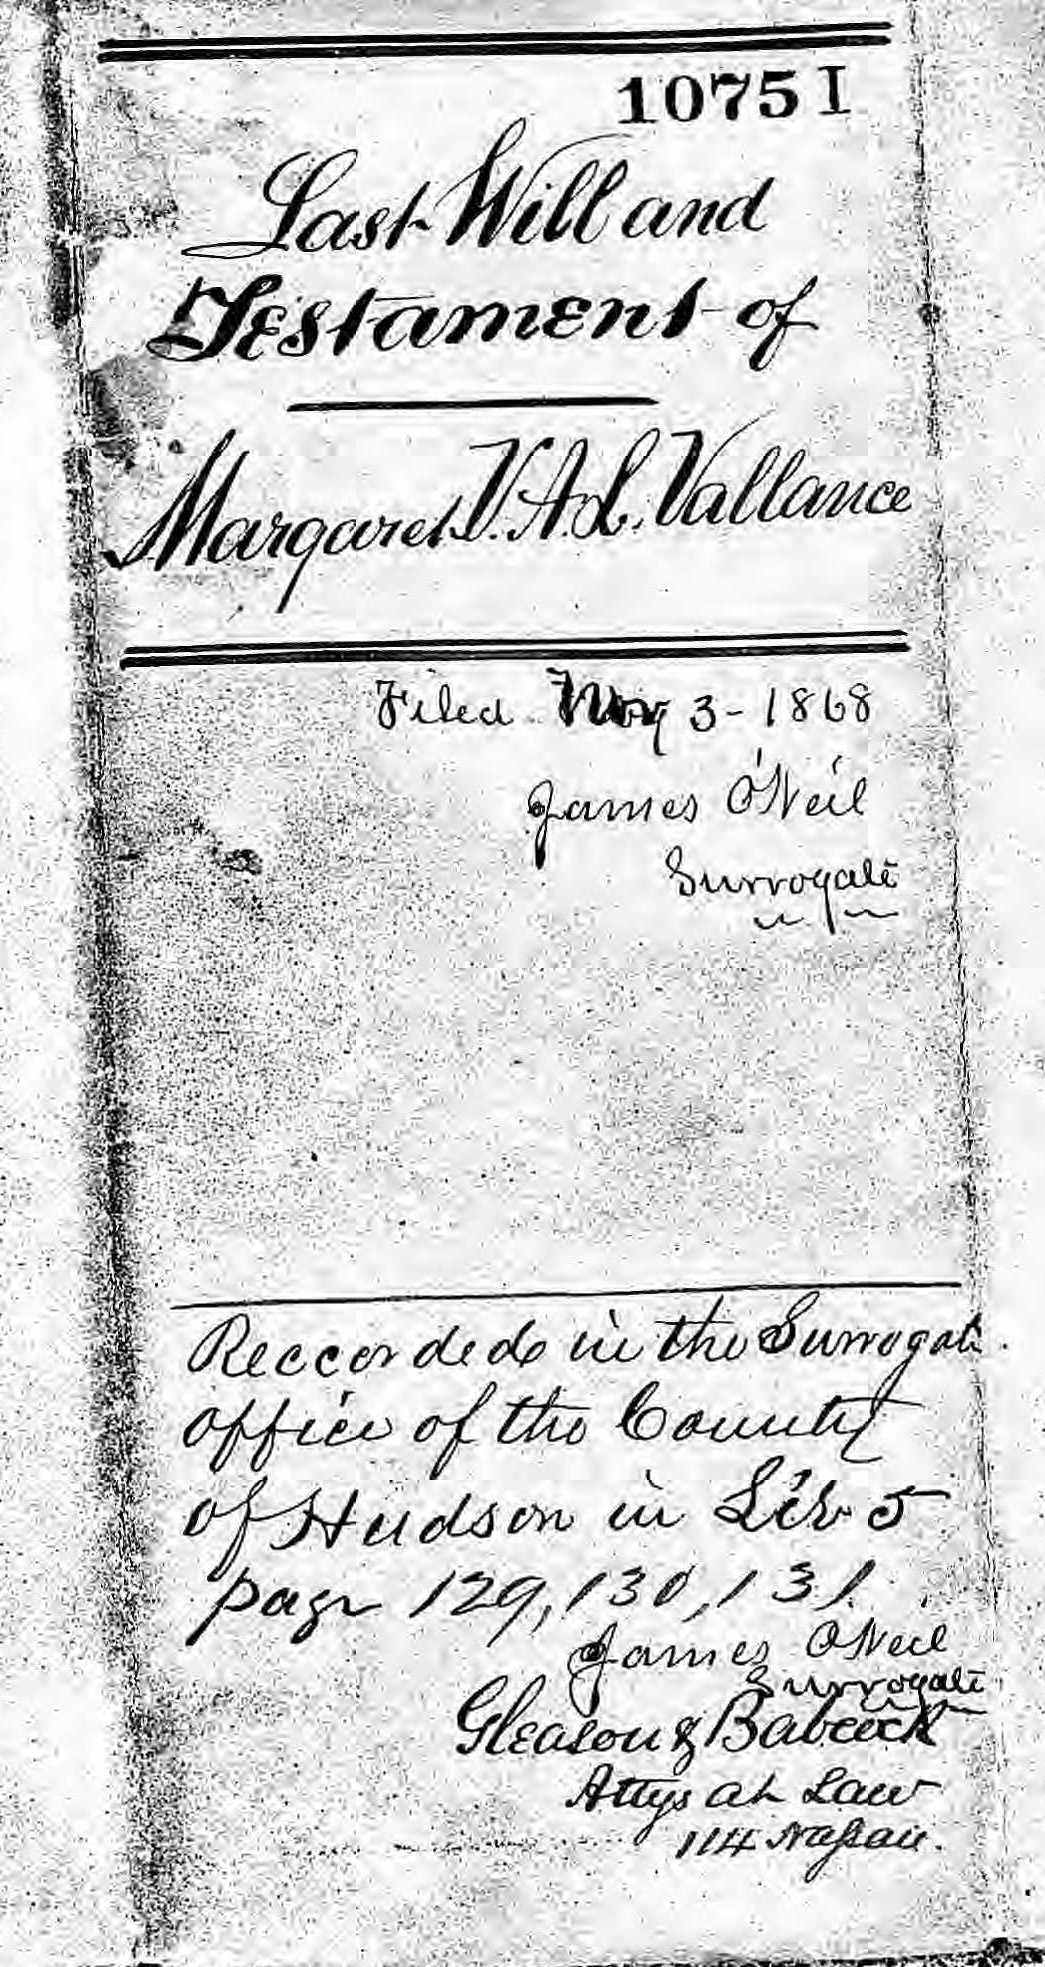 1075 I
Last Will and
Testament of
Margaret V. A. L. Vallance
Filed 3 - 1868
James O'Neil
Surrogate
Reccorded in the Surrogate
office of the County
of Hudson in Lib 5
page 129, 130, 131.
James O'Neil
Surrogate
Gleason & Babcock
Attys at Law
114 Nassau.